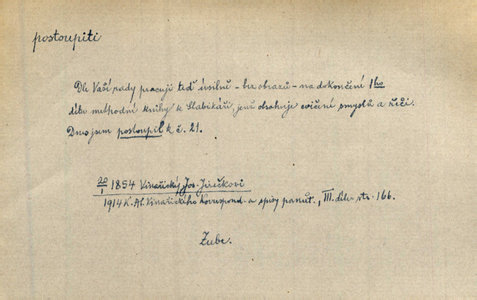 postoupiti
Dle Vaší rady pracuji teď úsilně - bez obrazů - na dokončení 1ho
dílu methodní knihy k Slabikáři, jenž obsahuje cvičení smyslů a řeči.
Dnes jsem postoupil k č. 21.
20/I 1854 Vinařický Jos. Jirečkovi
1914 K. Al. Vinařického Korrespond. a spisy pamět., III. díl str. 166.
Zube.